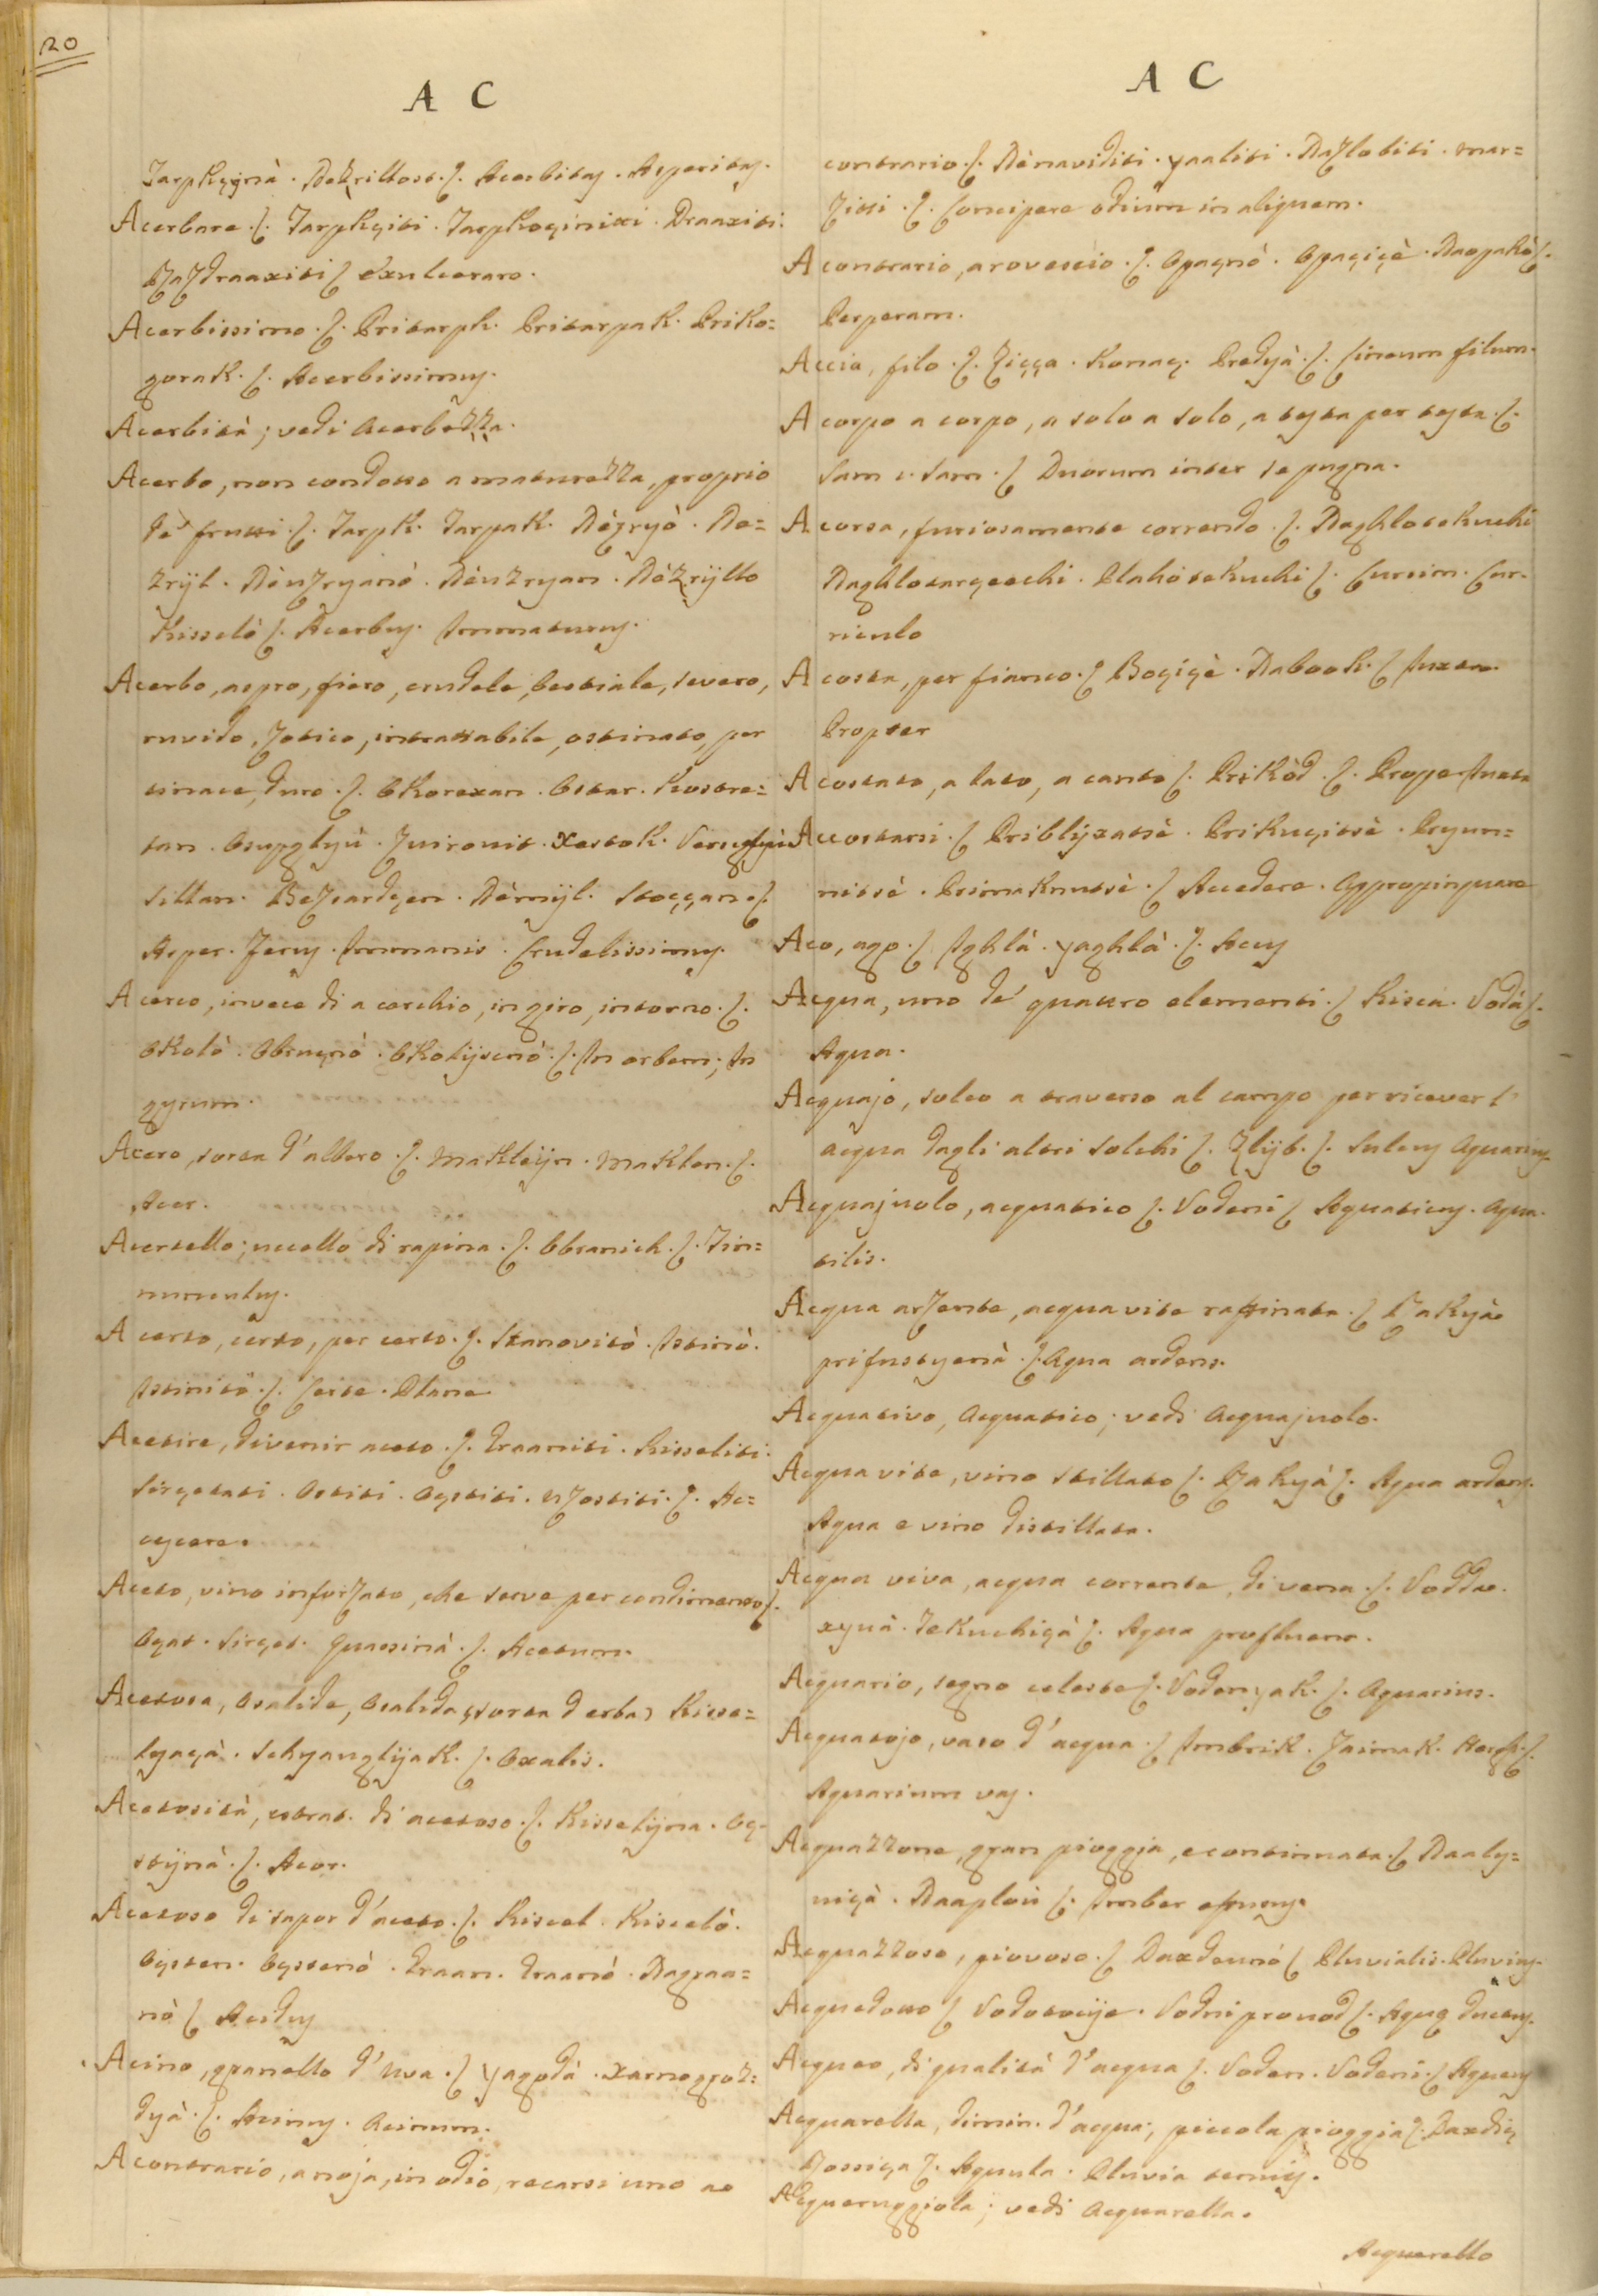 20
A C
Tarpkçynà. Dozrillost. ſ. Acerbitas. Asperitas.
Acerbare. ſ. Tarpkçiti. Tarpkoçiniti. Draaxiti.
Razdraaxiti ſ exulcerare.
Acerbissimo. ſ. Pritarpk. Pritarpak. Priko=
gorak. ſ. Acerbissimus.
Acerbità; vedi Acerbezza.
Acerbo, non condotto a maturezza, proprio
de' frutti. ſ. Tarpk. Tarpak. Nògryò. Ne=
zrijl. Nèuzryanò. Nèuzryan. Nèzrijllo
Kisselò ſ. Acerbus. Immaturus.
Acerbo, aspro, fiero, crudele, bestiale, severo,
ruvido, zotico, intrattabile, ostinato, per
tinace, duro. ſ. Okorexan. Ostar. Kostre=
tan. Zuironit. Xestok.
Sillan. Nèmijl. ſ.
Asper. Ferus. Immanis. Crudelissimus.
A cerco, invece di a cerchio, in giro, intorno. ſ.
Okolò. Obruçnò. Okolijscnò. ſ. In orbem; In
gyrum.
Acero, sorta d'albero. ſ. Makleijn. Maklen. ſ.
Acer.
Acertello; uccello di rapina. ſ. Obranich. ſ. Tin=
nunculus.
A certo, certo, per certo. ſ. Stanovitò. Istinò.
Istinitò. ſ. Certe. Plane.
Acetire, divenir aceto. ſ. Graaniti. Kisseliti.
Sirçetati. Ostiti. Oçstiti. Uzostiti. ſ. Ac=
cescere.
Aceto, vino inforzato, che serve per condimento ſ.
Oçat. Sirçet. Quassinà. ſ. Acetum.
Acetosa, Osalide, Osalida, sorta d'erba Kisse=
lyaçà. Schyauglijak. ſ. Oxalis.
Acetosità, astrat. di acetoso. ſ. Kisselijna. Oç=
stijnà. ſ. Acor.
Acetoso di sapor d'aceto. ſ. Kiscel. Kiscelò.
Oçsten. Oçstenò. Graan. Graanò. Nagraa=
nò ſ Acidus
Acino, granello d'uva. ſ yagodà. xarnogroz=
dyà. ſ. Acinus. Acinum.
A contrario, a noja, in odio, recarsi uno a
A C
contrario. ſ. Nènaviditi. yaaliti. Nazlobiti. mar=
ziti. ſ. Concipere odium in aliquem.
A contrario, a rovescio. ſ. Opaçnò. Opaçiçè. Naopakò ſ.
Perperam.
Accia, filo. ſ. Ziçça. Konaç. Predyà. ſ. Lineum filum.
A corpo a corpo, a solo a solo, a testa per testa. ſ.
Sam i Sam. ſ Duorum inter se pugna.
A corsa, furiosamente correndo. ſ. Naghlotekuchi
Naghlotarçeechi. Plahòtekuchi ſ. Cursim. Cur=
riculo
A costa, per fianco. ſ Boçiçè. Nabook. ſ Iuxta.
Propter
A costato, a lato, a canto ſ. Prikòd. ſ. Prope. Iuxta
Accostarsi. ſ Priblijxatsè. Prikuçitsè. Pryun=
nitsè. Primaknutsè. ſ Accedere. Appropinquare
Aco, ago. ſ Ighlà. yaghlà. ſ. Acus
Acqua, uno de' quattro elementi. ſ Kisca. Vodà ſ.
Aqua.
Acquajo, solco a traverso al campo per ricever l'
acqua dagli altri solchi ſ. Zlijb. ſ. Sulcus Aquarius.
Acquajuolo, acquatico ſ. Vodeni ſ Aquaticus. Aqua=
tilis.
Acqua arzente, acquavite raffinata. ſ Rakyà
prifustyenà. ſ. Aqua ardens.
Acquativo, Acquatico; vedi Acquajuolo.
Acqua vite, vino stillato ſ. Rakyà ſ. Aqua ardens.
Aqua e vino distillata.
Acqua viva, acqua corrente, di vena. ſ. Vodda.
xyuà. Tekuchiçà ſ. Aqua profluens.
Acquario, segno celeste ſ. Vodenyak. ſ. Aquarius.
Acquatojo, vaso d'acqua. ſ Imbrik. Zaimak. ſ.
Aquarium vas.
Acquazzone, gran pioggia, e continuata. ſ Naaly=
niçà. Naaplou ſ. Imber effusus.
Acquazzoso, piovoso. ſ Daxdounò ſ Pluvialis. Pluvius.
Acquedotto ſ Vodotocije. Vodni provod ſ. Aquæ ductus.
Acqueo, di qualità d'acqua ſ. Voden. Vodeni. ſ Aqueus
Acquarella, dimin. d'acqua; piccola pioggia ſ. Daxdiç
Rossiça ſ. Aquula. Pluvia tenuis.
Acqueruggiola; vedi Acquarella.
Acquerello